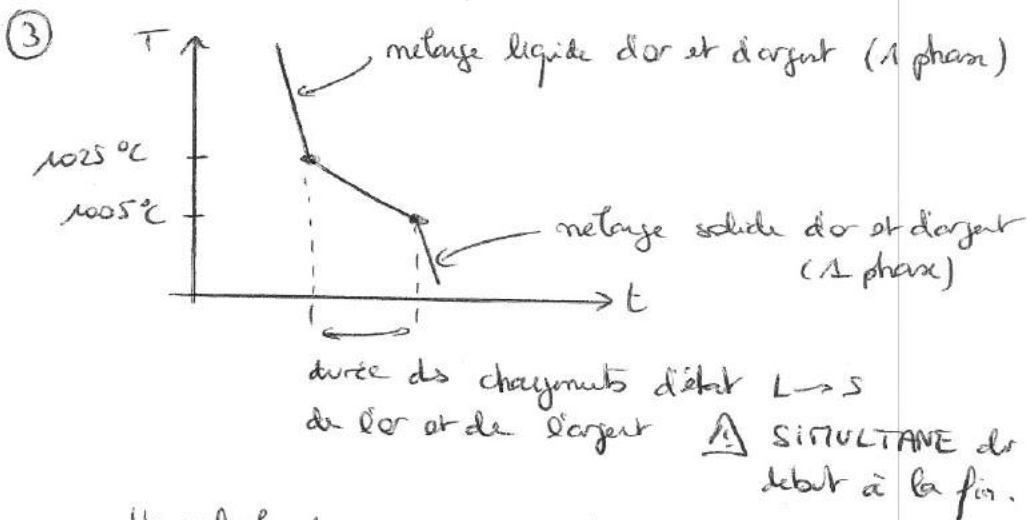 ③
T
mélange liquide d'or et d'argent (1 phase)
1025 °C
1005 °C
mélange solide d'or et d'argent
(1 phase)
t
durée des changements d'état L → S
de l'or et de l'argent ⚠ SIMULTANE du
début à la fin.